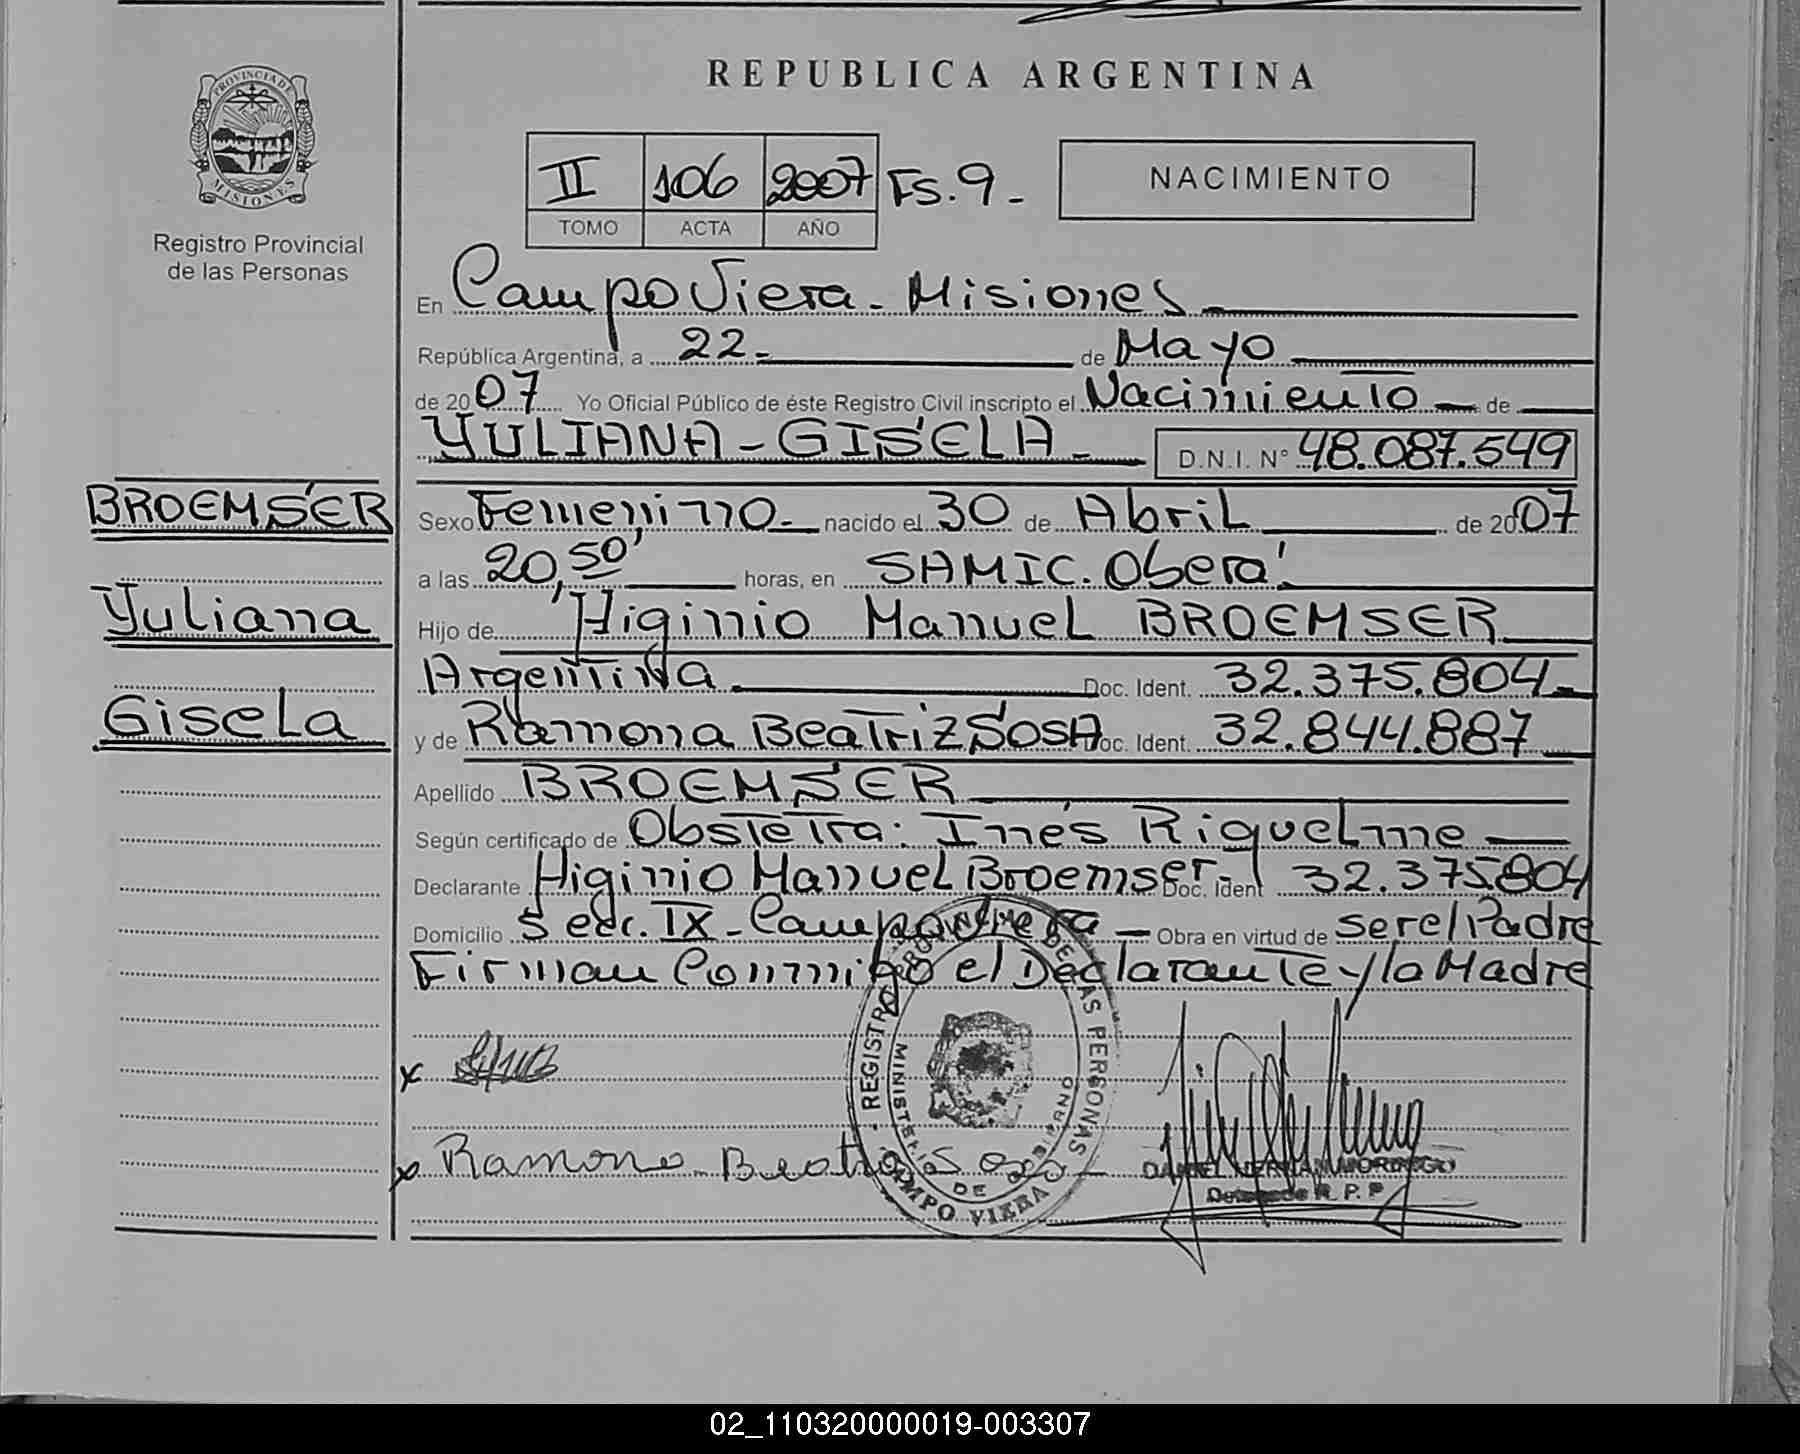 REPUBLICA ARGENTINA
PROVINCIA DE
MISIONES
Registro Provincial
de las Personas
II 106 2007 Fs. 9.-
TOMO ACTA AÑO
NACIMIENTO
En Campo Viera - Misiones
República Argentina, a 22.- de Mayo
de 2007 Yo Oficial Público de éste Registro Civil inscripto el Nacimiento de
YULIANA - GISELA - D.N.I. N° 48.087.549
BROEMSER
Yuliana
Gisela
Sexo Femenino - nacido el 30 de Abril de 2007
a las 20,50' horas, en SAMIC. Oberá.
Hijo de Higinio Manuel BROEMSER
Argentina Doc. Ident. 32.375.804.-
y de Ramona Beatriz SOSA Doc. Ident. 32.844.887
Apellido BROEMSER
Según certificado de Obstetra: Inés Riquelme
Declarante Higinio Manuel Broemser - Doc. Ident 32.375.804
Domicilio Secc. IX - Campo Viera - Obra en virtud de ser el Padre
Firman Conmigo el Declarante y la Madre
x
x Ramona Beatriz Sosa
REGISTRO PROVINCIAL DE LAS PERSONAS
MINISTERIO DE GOBIERNO
CAMPO VIERA
Delegado R. P. P
02_110320000019-003307